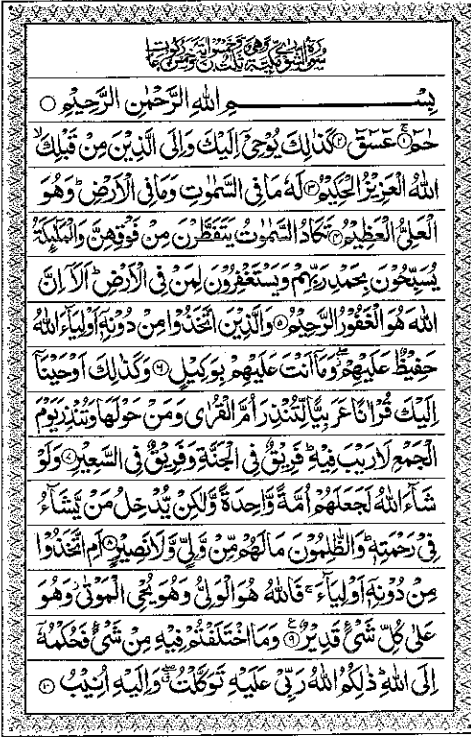 سُوْرَةُ الشُّوْرٰى مَكِّيَّةٌ وَّهِىَ ثَلٰثٌ وَّخَمْسُوْنَ اٰيَةً وَّخَمْسُ رُكُوْعَاتٍ
بِسْــــــــمِ اللهِ الرَّحْمٰنِ الرَّحِيْمِ ○
حٰمٓ ۚ﴿۱﴾ عٓسٓقٓ ﴿۲﴾ كَذٰلِكَ يُوْحِىْٓ اِلَيْكَ وَاِلَى الَّذِيْنَ مِنْ قَبْلِكَ ۙ
اللهُ الْعَزِيْزُ الْحَكِيْمُ ﴿۳﴾ لَهٗ مَا فِى السَّمٰوٰتِ وَمَا فِى الْاَرْضِ ؕ وَهُوَ
الْعَلِىُّ الْعَظِيْمُ ﴿۴﴾ تَكَادُ السَّمٰوٰتُ يَتَفَطَّرْنَ مِنْ فَوْقِهِنَّ وَالْمَلٰٓئِكَةُ
يُسَبِّحُوْنَ بِحَمْدِ رَبِّهِمْ وَيَسْتَغْفِرُوْنَ لِمَنْ فِى الْاَرْضِ ؕ اَلَآ اِنَّ
اللهَ هُوَ الْغَفُوْرُ الرَّحِيْمُ ﴿۵﴾ وَالَّذِيْنَ اتَّخَذُوْا مِنْ دُوْنِهٖٓ اَوْلِيَآءَ اللهُ
حَفِيْظٌ عَلَيْهِمْ ۖ وَمَآ اَنْتَ عَلَيْهِمْ بِوَكِيْلٍ ﴿۶﴾ وَكَذٰلِكَ اَوْحَيْنَآ
اِلَيْكَ قُرْاٰنًا عَرَبِيًّا لِّتُنْذِرَ اُمَّ الْقُرٰى وَمَنْ حَوْلَهَا وَتُنْذِرَ يَوْمَ
الْجَمْعِ لَا رَيْبَ فِيْهِ ؕ فَرِيْقٌ فِى الْجَنَّةِ وَفَرِيْقٌ فِى السَّعِيْرِ ﴿۷﴾ وَلَوْ
شَآءَ اللهُ لَجَعَلَهُمْ اُمَّةً وَّاحِدَةً وَّلٰكِنْ يُّدْخِلُ مَنْ يَّشَآءُ
فِىْ رَحْمَتِهٖ ؕ وَالظّٰلِمُوْنَ مَا لَهُمْ مِّنْ وَّلِىٍّ وَّلَا نَصِيْرٍ ﴿۸﴾ اَمِ اتَّخَذُوْا
مِنْ دُوْنِهٖٓ اَوْلِيَآءَ ۚ فَاللهُ هُوَ الْوَلِىُّ وَهُوَ يُحْىِ الْمَوْتٰى ۡ وَهُوَ
عَلٰى كُلِّ شَىْءٍ قَدِيْرٌ ﴿۹﴾ وَمَا اخْتَلَفْتُمْ فِيْهِ مِنْ شَىْءٍ فَحُكْمُهٗٓ
اِلَى اللهِ ؕ ذٰلِكُمُ اللهُ رَبِّىْ عَلَيْهِ تَوَكَّلْتُ ۖ وَاِلَيْهِ اُنِيْبُ ﴿۱۰﴾